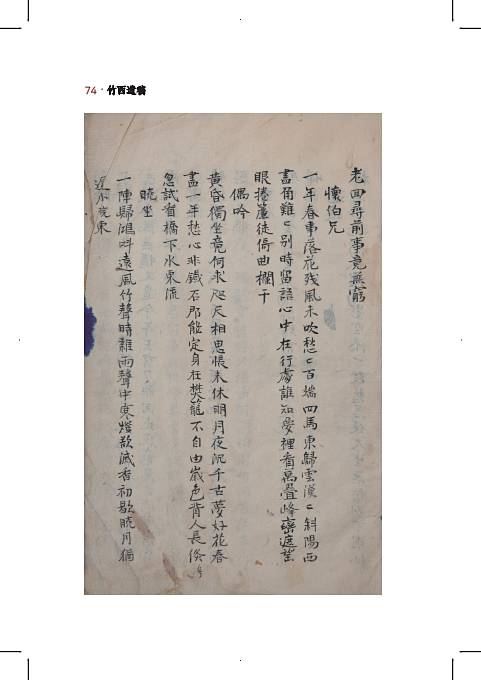 74 · 竹西遺稿
老回尋前事竟無窮
懷伯兄
一年春事落花残風未吹愁〻百端四馬東歸雲漠〻斜陽西
畵角難〻別時留語心中在行處誰知夢裡看萬疊峰巒遮望
眼捲簾徒倚曲欄干
偶吟
黃昏獨坐竟何求咫尺相思悵未休明月夜沉千古夢好花春
盡一年愁心非鐵石那能定身在樊籠不自由歲色背人長倏
忽試看橋下水東流
曉坐
一陣歸鴻叫遠風竹聲時雜雨聲中寒燈欲滅香初歇曉月猶
在東